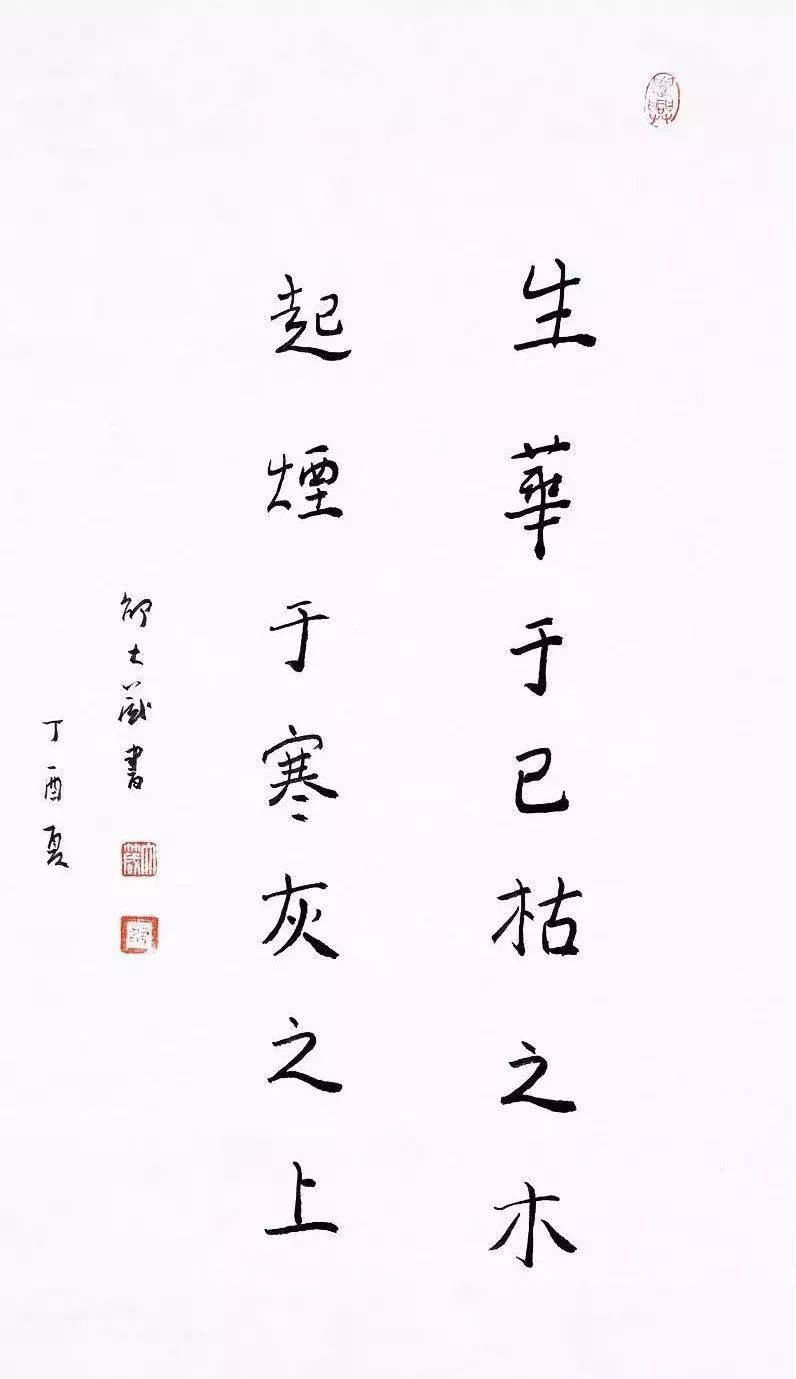 生華于已枯之木
起煙于寒灰之上
邵大箴書
丁酉夏